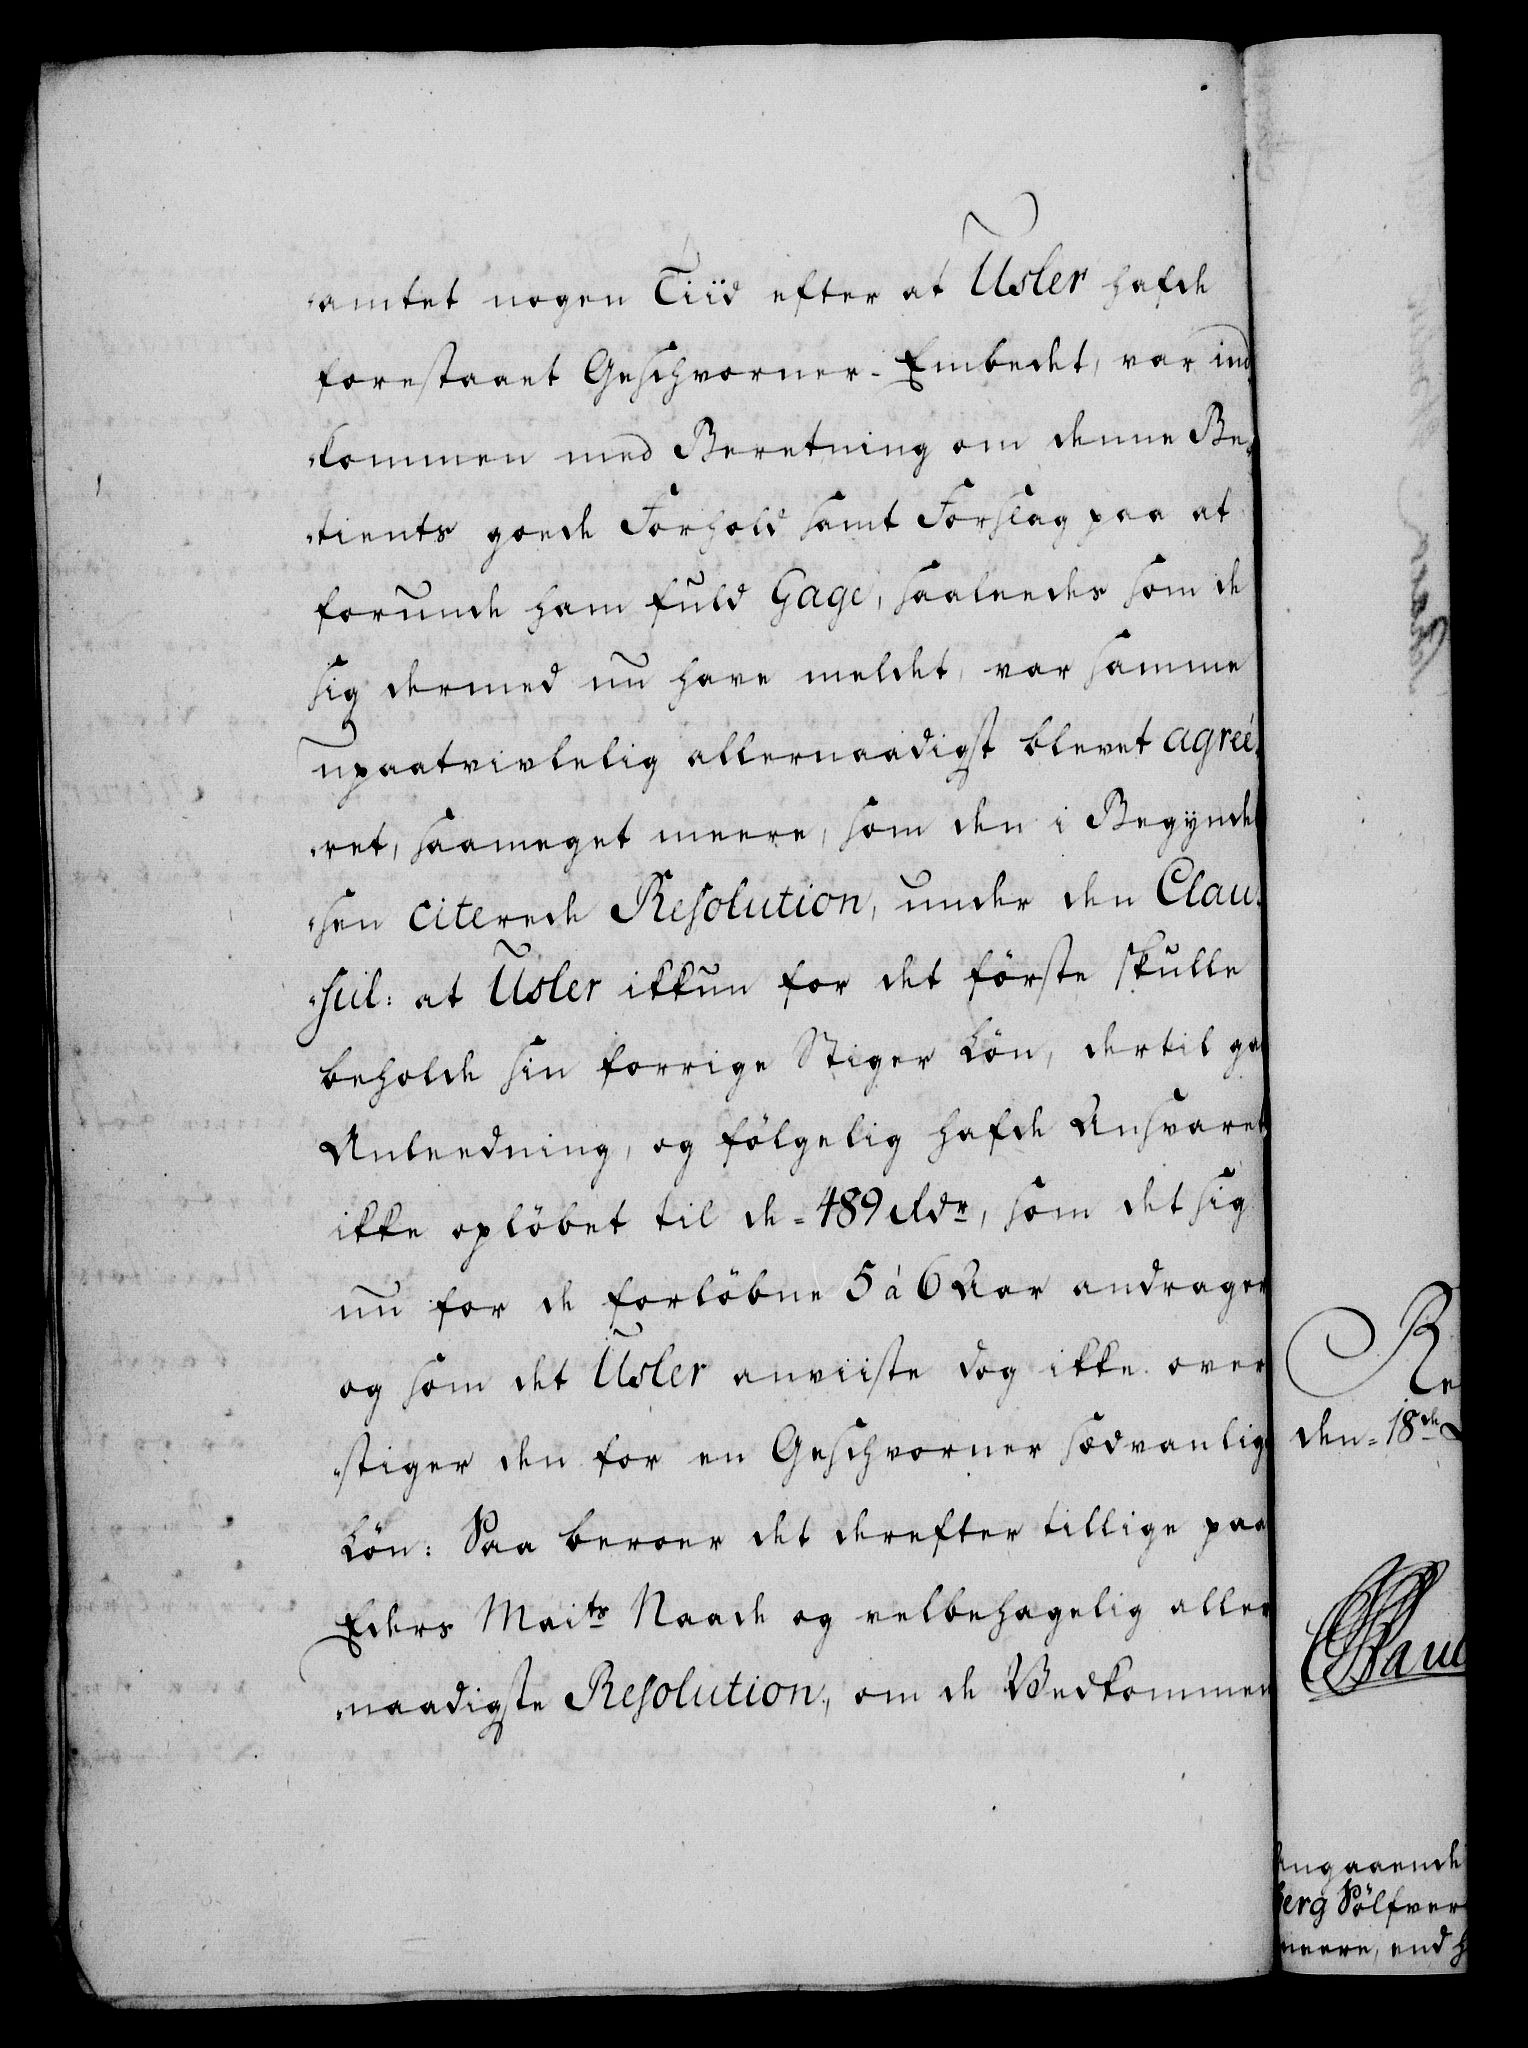 "amtet nogen Tiid efter at Usler hafde
forestaaet Geschvorner-Embedet, var ind
"kommen med Beretning om denne Be"
"tients goede Forhold samt Forslag paa at
forunde ham fuld Gage, saaleedes som de
sig dermed nu have meldet, var samme
upaatvivlelig allernaadigst blevet agreé"
"ret, saameget meere, som den i Begyndel
"sen citerede Resolution, under den Clau"
"sul: at Usler ikkun for det förste skulle
beholde sin forrige Stiger Lön, dertil gav
Anleedning, og fölgelig hafde Ansvaret
ikke oplöbet til de = 489 Rdr, som det sig
nu for de forlöbne 5 á 6 Aar andrager
og som det Usler anviiste dog ikke over
"stiger den for en Geschvorner sædvanlige
Lön: Saa beroer det derefter tillige paa
Eders Maits Naade og velbehagelig aller
"naadigste Resolution, om de Vedkommen
den = 18de
Angaaende
berg Sölfver
meere, end h